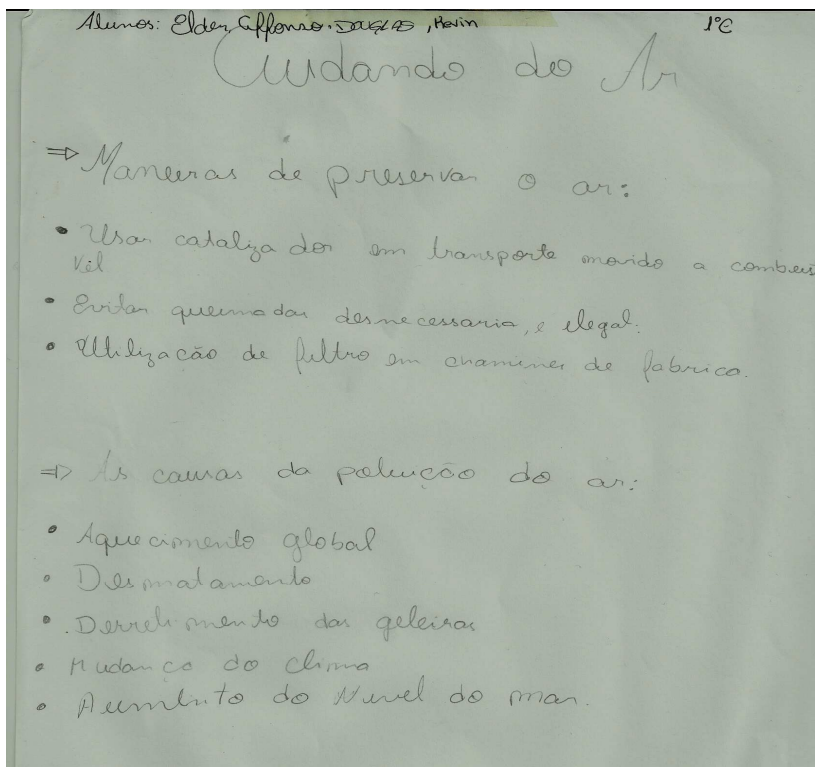 Alunos: Elder, Affonso, Douglas, Kevin 1°C
Cuidando do Ar
⇒ Maneiras de preservar o ar:
• Usar catalizador em transporte movido a combusti
vel
• Evitar queimadas desnecessaria, e elegal.
• Utilização de filtro em chamines de fabrica.
⇒ As causas da poluição do ar:
• Aquecimento global
• Desmatamento
• Derretimento das geleiras
• Mudança do clima
• Aumento do Nivel do mar.